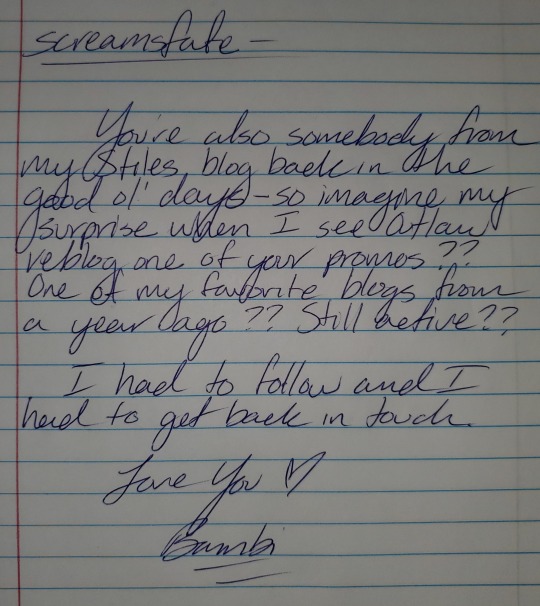 screamsfate -
You're also somebody from
my Stiles blog back in the
good ol' days - so imagine my
surprise when I see Atlaw
reblog one of your promos??
One of my favorite blogs from
a year ago?? Still active??
I had to follow and I
had to get back in touch.
Love You ♡
Bambi